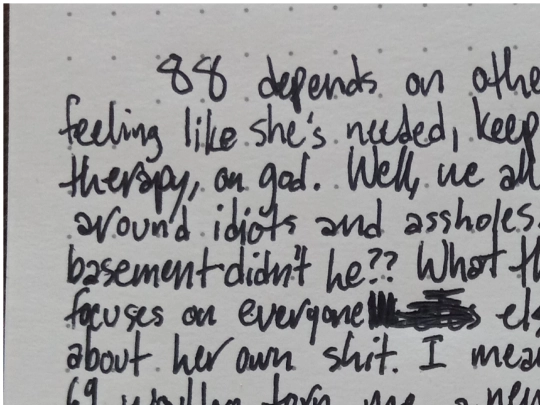 88 depends on othe
feeling like she's needed, keep
therapy, on god. Well, we all
around idiots and assholes.
basement didn't he?? What th
focuses on everyone els
about her own shit. I mean
69 me a new